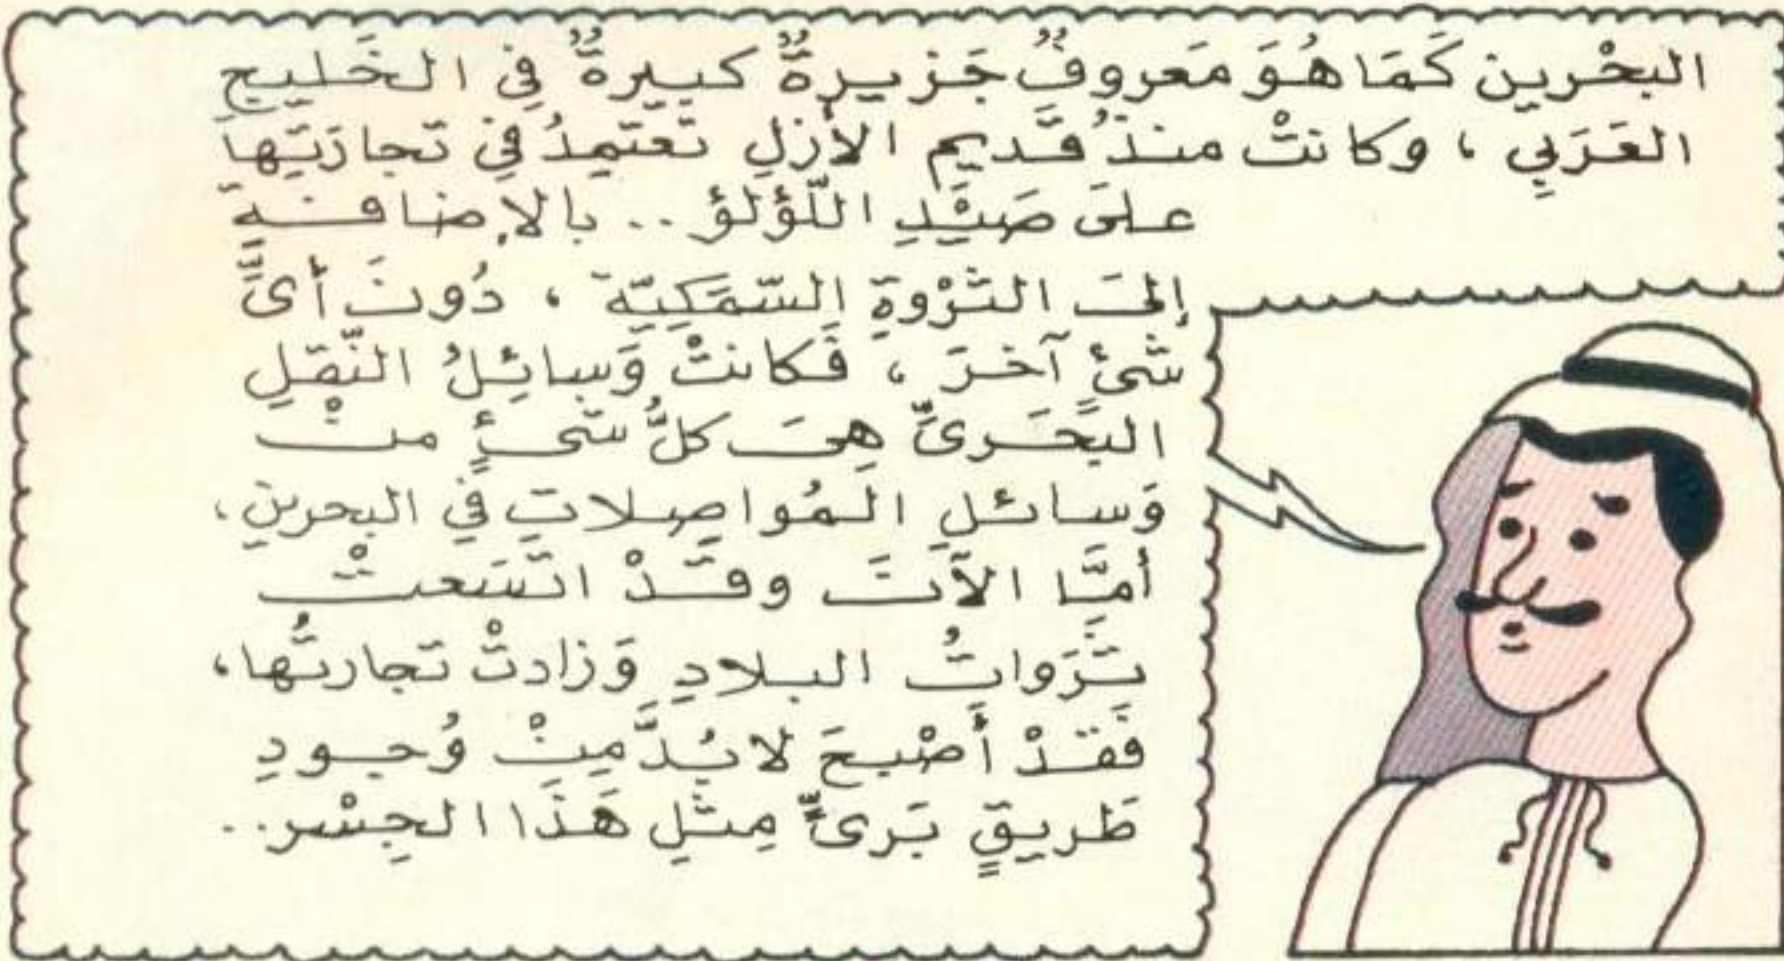 البحْرين كَمَا هُوَ مَعروفٌ جَزيرةٌ كبيرةٌ فِي الخَليج
العَرَبِي ، وكانتْ منذُ قَديم الأزلِ تَعتَمِدُ فِي تَجارَتِها
علىَ صَيْدِ اللّؤلؤ .. بالإضافة
إلىَ الثَرْوةِ السّمَكِيّة ، دُونَ أىَّ
شَئٍ آخرَ ، فَكانتْ وَسائِلُ النّقلِ
البَحَرىِّ هِىَ كلُّ شَىءٍ منْ
وَسائلِ المُواصِلاتِ فِي البحرينِ ،
أمَّا الآنَ وقَدْ اتّسَعتْ
ثَرَواتُ البلادِ وَزادتْ تَجارتُها ،
فَقَدْ أَصْبحَ لابُدَّ مِنْ وُجودِ
طَريقٍ بَرىٍّ مِثلِ هَذَا الجِسْر ..